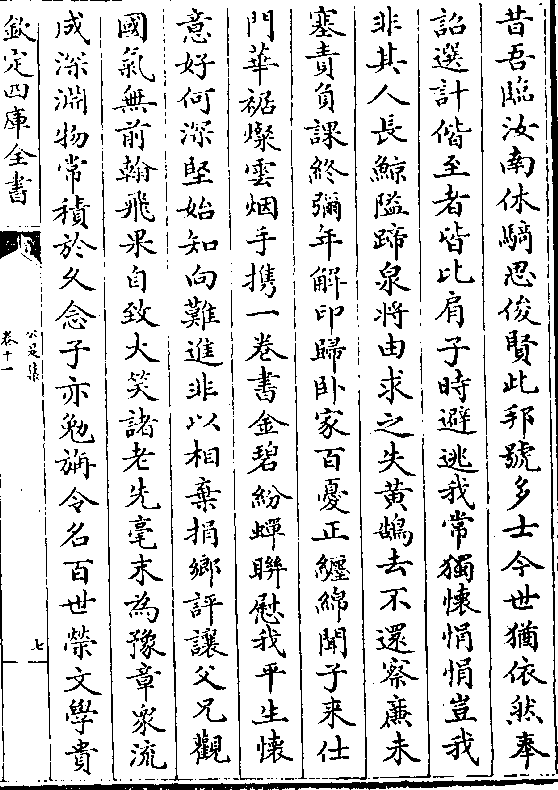 昔吾臨汝南休騎思俊賢此邦號多士今世猶依然奉
詔選計偕至者皆比肩子時避逃我常獨懷悁悁豈我
非其人長鯨隘蹄泉將由求之失黄鵠去不還察亷未
塞責負課終彌年解印歸卧家百憂正纒綿聞子來仕
門華裾燦雲烟手攜一卷書金碧紛蟬聨慰我平生懷
意好何深堅始知向難進非以相棄捐鄉評讓父兄觀
國氣無前翰飛果自致大笑諸老先毫末為豫章衆流
成深淵物常積於久念子亦勉旃令名百世榮文學貴
欽定四庫全書
公是集
卷十一
七